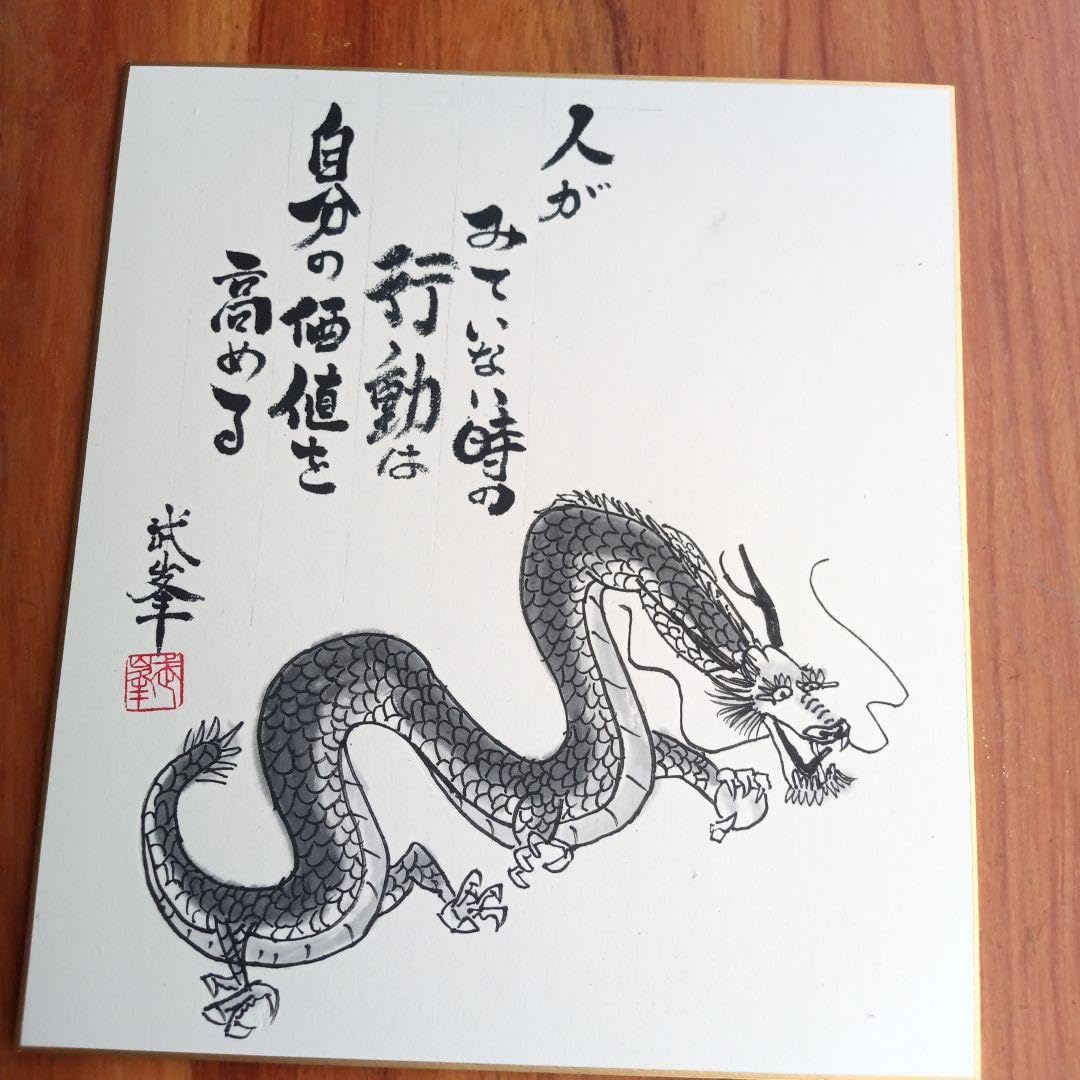 人が
みていない時の
行動は
自分の価値を
高める
武峯
武峯